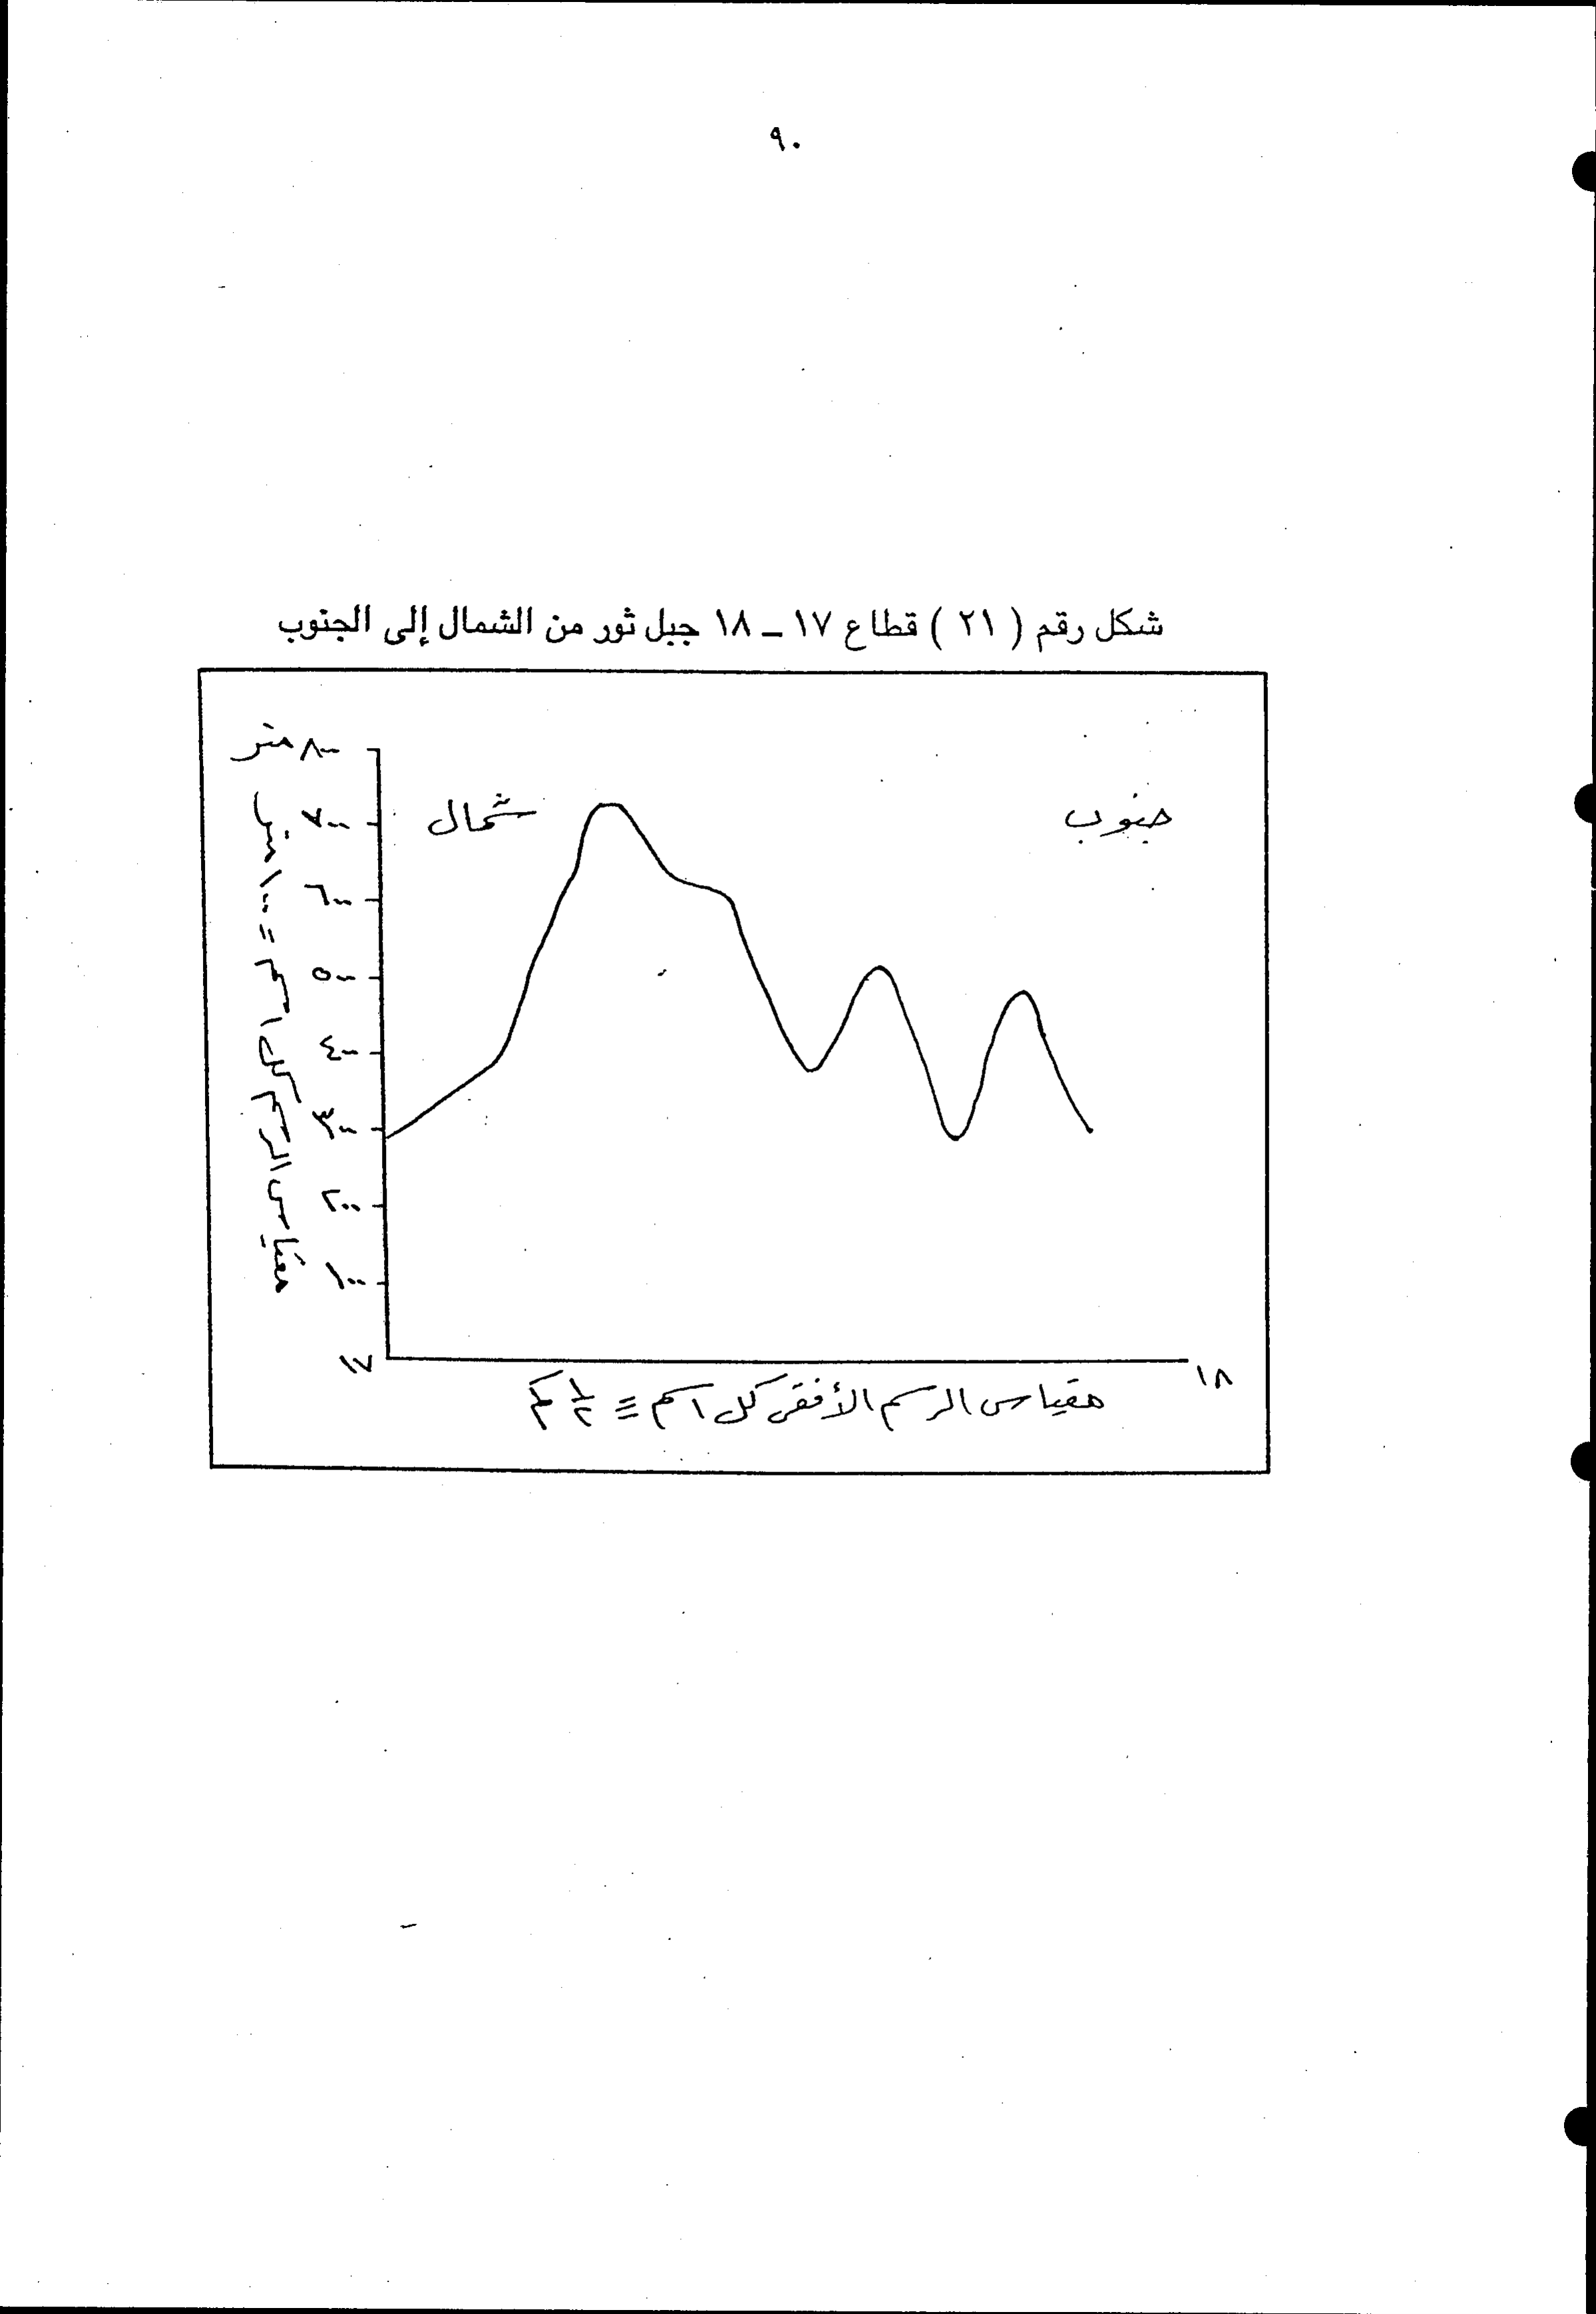 ٩٠
شكل رقم ( ٢١ ) قطاع ١٧ ــ ١٨ جبل ثور من الشمال إلى الجنوب
٨٠٠ متر
٧٠٠
٦٠٠
٥٠٠
٤٠٠
٣٠٠
٢٠٠
١٠٠
شمال
جنوب
مقياس الرسم كل ١سم = ١٠٠ متر
١٧
١٨
مقياس الرسم الأفقى كل ١سم = ١/٢ كم